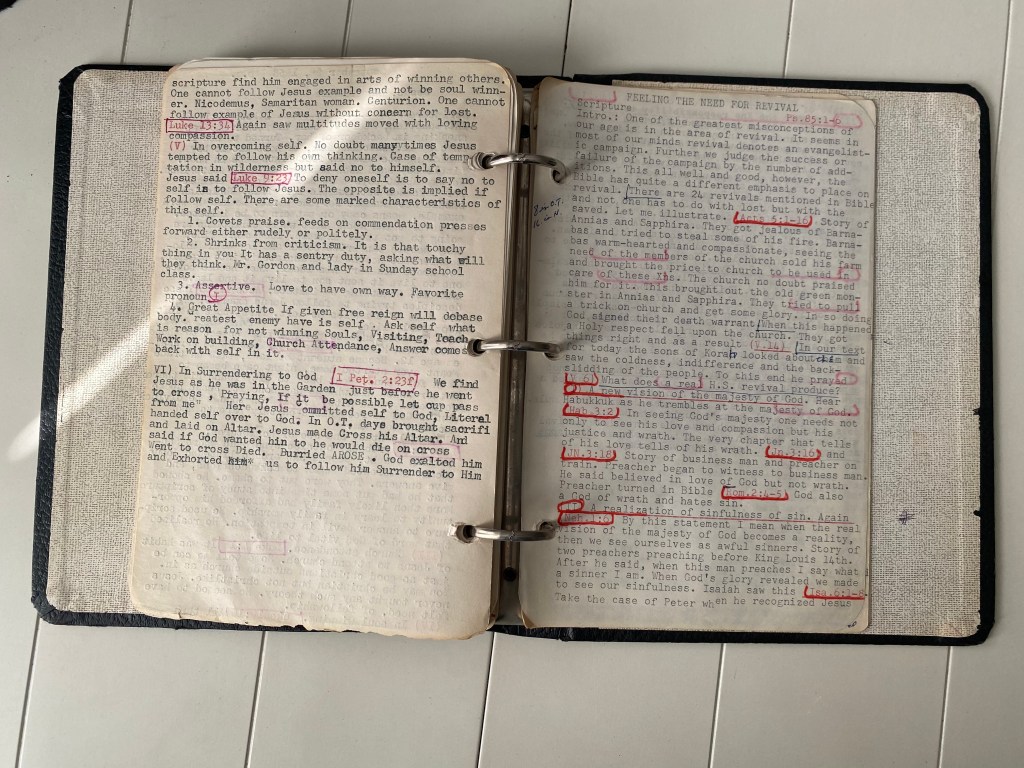 scripture find him engaged in arts of winning others.
One cannot follow Jesus example and not be soul winn-
er. Nicodemus, Samaritan woman. Centurion. One cannot
follow example of Jesus without concern for lost.
Luke 13:34 Again saw multitudes moved with loving
compassion.
(V) In overcoming self. No doubt many times Jesus
tempted to follow his own thinking. Case of temp-
tation in wilderness but said no to himself.
Jesus said Luke 9:23 To deny oneself is to say no to
self in to follow Jesus. The opposite is implied if
follow self. There are some marked characteristics of
this self.
1. Covets praise. feeds on commendation presses
forward either rudely or politely.
2. Shrinks from criticism. It is that touchy
thing in you It has a sentry duty, asking what will
they think. Mr. Gordon and lady in Sunday school
class.
3. Assertive. Love to have own way. Favorite
pronoun I
4. Great Appetite If given free reign will debase
body. reatest enemy have is self . Ask self what
is reason for not winning Souls, Visiting, Teach
Work on building, Church Attendance, Answer comes
back with self in it.
VI) In Surrendering to God I Pet. 2:23f We find
Jesus as he was in the Garden just before he went
to cross , Praying, If it be possible let cup pass
from me" Here Jesus ommitted self to God, Literal
handed self over to God. In O.T. days brought sacrifi
and laid on Altar. Jesus made Cross his Altar. And
said if God wanted him to he would die on cross
Went to cross Died. Burried AROSE . God exalted him
and Exhorted him* us to follow him Surrender to Him
FEELING THE NEED FOR REVIVAL
Scripture Ps.85:1-6
Intro.: One of the greatest misconceptions of
our age is in the area of revival. It seems in
most of our minds revival denotes an evangelist-
ic campaign. Further we judge the success or
failure of the campaign by the number of add-
itions. This all well and good, however, the
Bible has quite a different emphasis to place on
revival. There are 24 revivals mentioned in Bible
and not one has to do with lost but with the
saved. Let me illustrate. Acts 5:1-16 Story of
Annias and Sapphira. They got jealous of Barna-
bas and tried to steal some of his fire. Barna-
bas warm-hearted and compassionate, seeing the
need of the members of the church sold his farm
and brought the price to church to be used in
care of these Xns. The church no doubt praised
him for it. This brought out the old green mon-
ster in Annias and Sapphira. They tried to pull
a trick on church and get some glory. In so doing
God signed their death warrant When this happened
a Holy respect fell upon the church. They got
things right and as a result In our text
for today the sons of Korah looked about and
saw the coldness, indifference and the back-
slidding of the people. To this end he prayed
What does a real H.S. revival produce?
new vision of the majesty of God. Hear
Habukkuk as he trembles at the majesty of God.
Hab.3:2 In seeing God's majesty one needs not
only to see his love and compassion but his
justice and wrath. The very chapter that tells
of his love tells of his wrath. Jn.3:16 and
JN.3:18 Story of business man and preacher on
train. Preacher began to witness to business man.
He said believed in love of God but not wrath.
Preacher turned in Bible Rom.2:4-5 God also
a God of wrath and hates sin.
A realization of sinfulness of sin. Again
By this statement I mean when the real
vision of the majesty of God becomes a reality,
then we see ourselves as awful sinners. Story of
two preachers preaching before King Louis 14th.
After he said, when this man preaches I say what
a sinner I am. When God's glory revealed we made
to see our sinfulness. Isaiah saw this
Take the case of Peter when he recognized Jesus